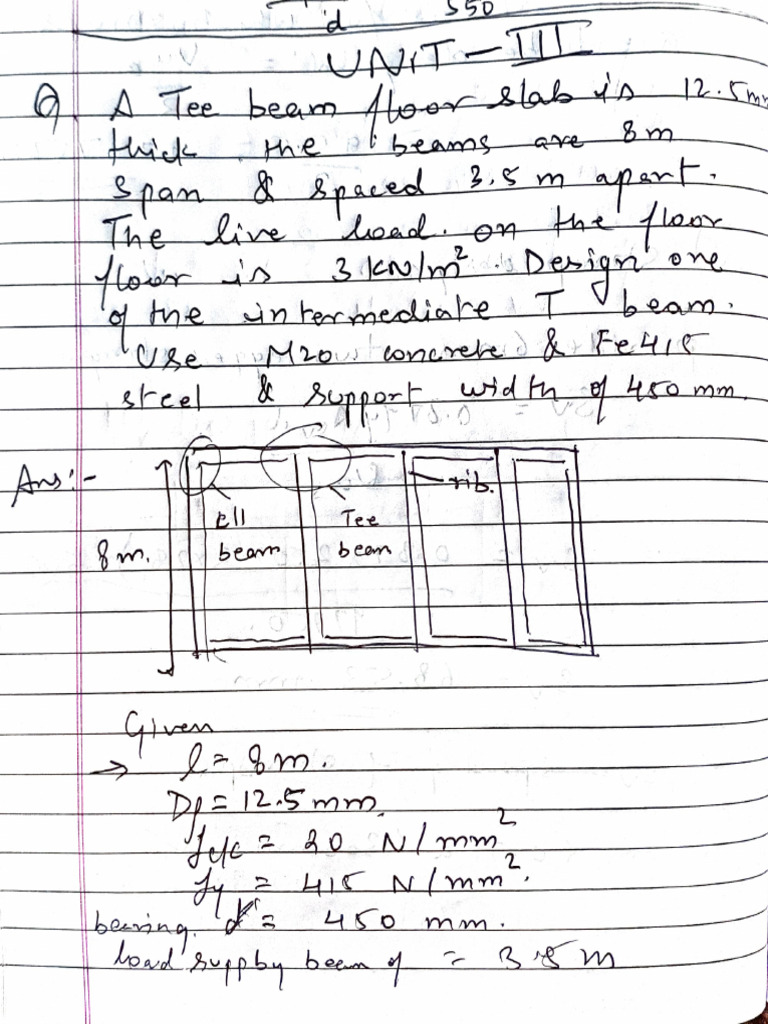 d 550
UNIT - III
Q. A Tee beam floor slab is 12.5mm
thick. the beams are 8m
span & spaced 3.5 m apart.
The live load. on the floor
floor is 3 KN/m². Design one
of the intermediate T beam.
Use M20 concrete & Fe415
steel & support width of 450 mm.
Ans:-
rib.
ell Tee
8m. beam beam
Given
→ l = 8m.
Df = 12.5mm.
fck = 20 N/mm²
fy = 415 N/mm².
bearing. d = 450 mm.
load suppby beam of = 3.5 m